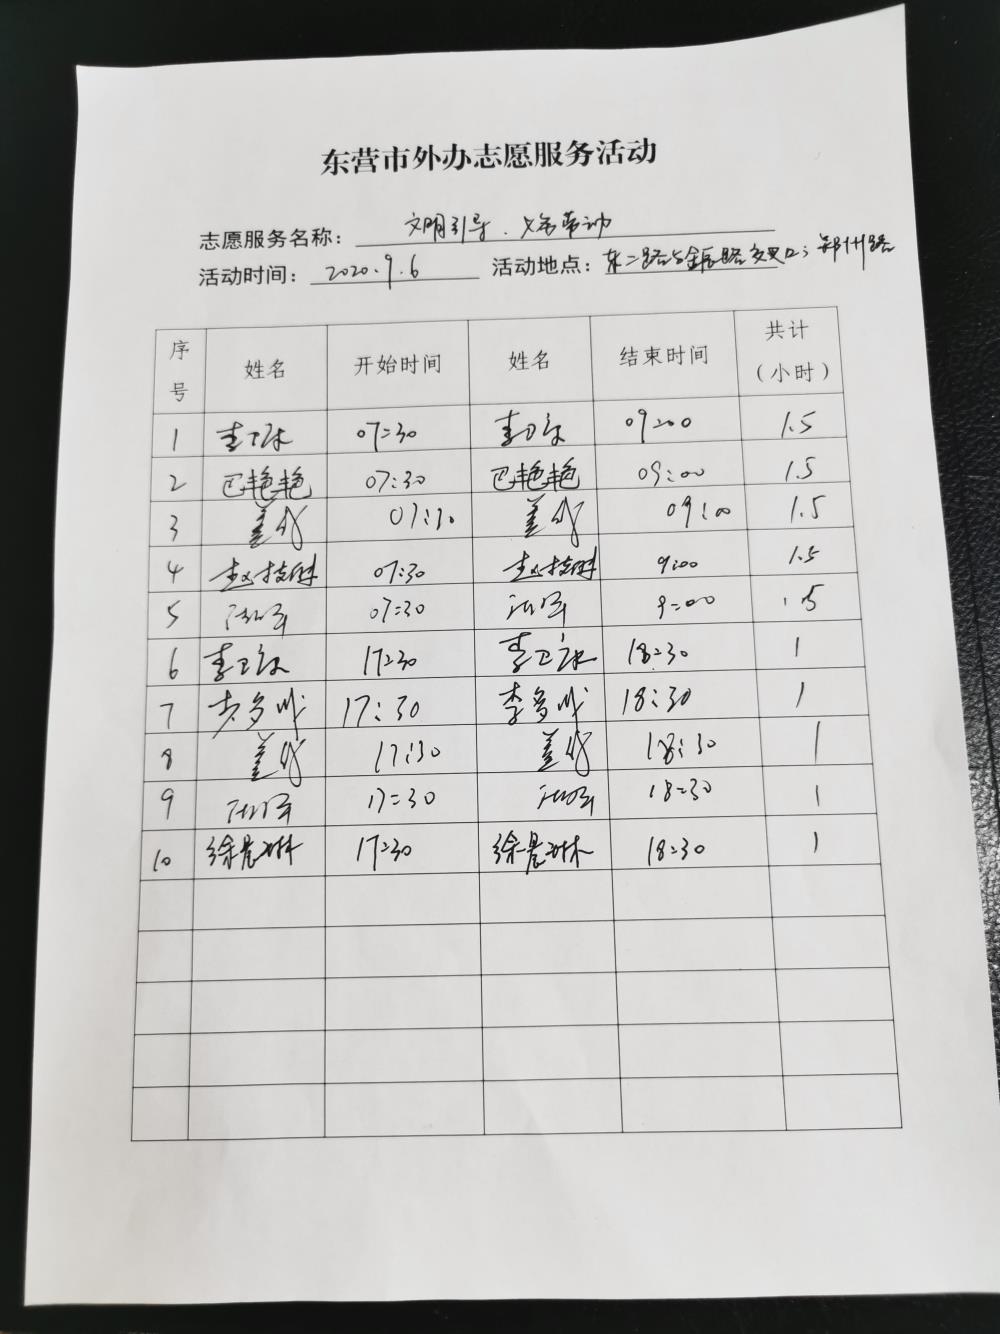 东营市外办志愿服务活动
志愿服务名称： 文明引导、义务劳动
活动时间： 2020.9.6 活动地点： 东二路与金辰路交叉口；郑州路
序号 姓名 开始时间 姓名 结束时间 共计（小时）
1 07:30 09:00 1.5
2 巴艳艳 07:30 巴艳艳 09:00 1.5
3 07:30 09:00 1.5
4 07:30 9:00 1.5
5 07:30 9:00 1.5
6 李卫 17:30 李卫 18:30 1
7 李多 17:30 李多 18:30 1
8 17:30 18:30 1
9 17:30 18:30 1
10 徐晨琳 17:30 徐晨琳 18:30 1